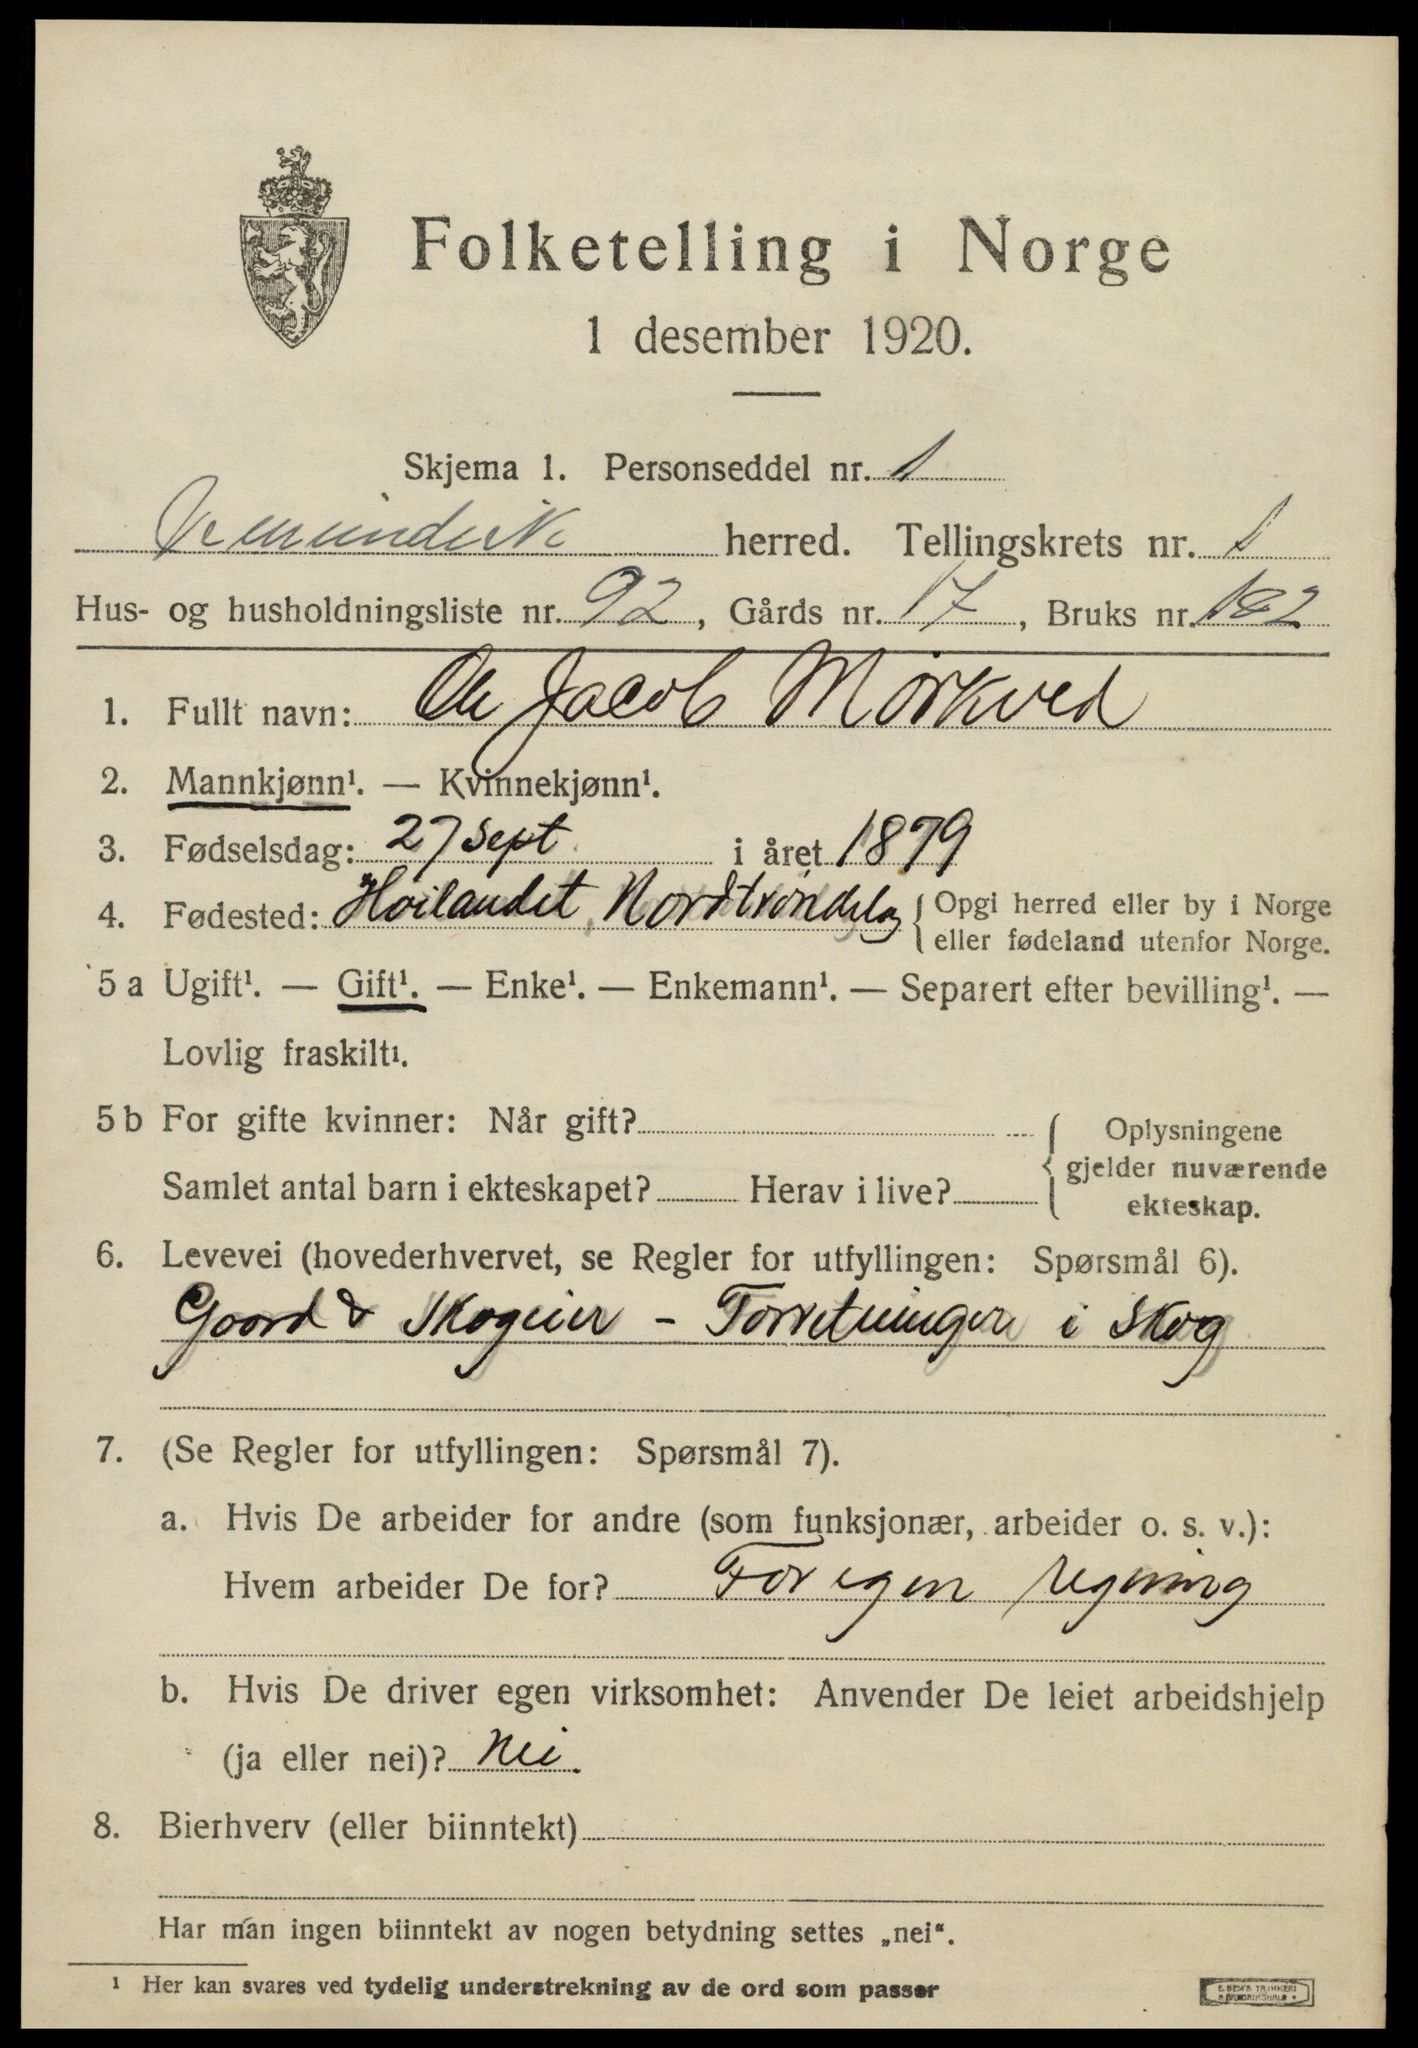 Folketelling i Norge
1 desember 1920.
Skjema 1. Personseddel nr. 1
herred. Tellingskrets nr. 1
Hus- og husholdningsliste nr. 92, Gårds nr. 17, Bruks nr. 182
1. Fullt navn: Ole Jacob Mørkved
2. Mannkjønn¹. — Kvinnekjønn¹.
3. Fødselsdag: 27 Sept. i året 1879
4. Fødested: Høilandet, Nordtrøndelag { Opgi herred eller by i Norge
eller fødeland utenfor Norge.
5 a Ugift¹. — Gift¹. — Enke¹. — Enkemann¹. — Separert efter bevilling¹. —
Lovlig fraskilt¹.
5 b For gifte kvinner: Når gift?
Samlet antal barn i ekteskapet? Herav i live?
Oplysningene
gjelder nuværende
ekteskap.
6. Levevei (hovederhvervet, se Regler for utfyllingen: Spørsmål 6).
Goord & Skogeier – Forretninger i Skog
7. (Se Regler for utfyllingen: Spørsmål 7).
a. Hvis De arbeider for andre (som funksjonær, arbeider o. s. v.):
Hvem arbeider De for? For egen regning
b. Hvis De driver egen virksomhet: Anvender De leiet arbeidshjelp
(ja eller nei)? Nei.
8. Bierhverv (eller biinntekt)
Har man ingen biinntekt av nogen betydning settes „nei“.
¹ Her kan svares ved tydelig understrekning av de ord som passer